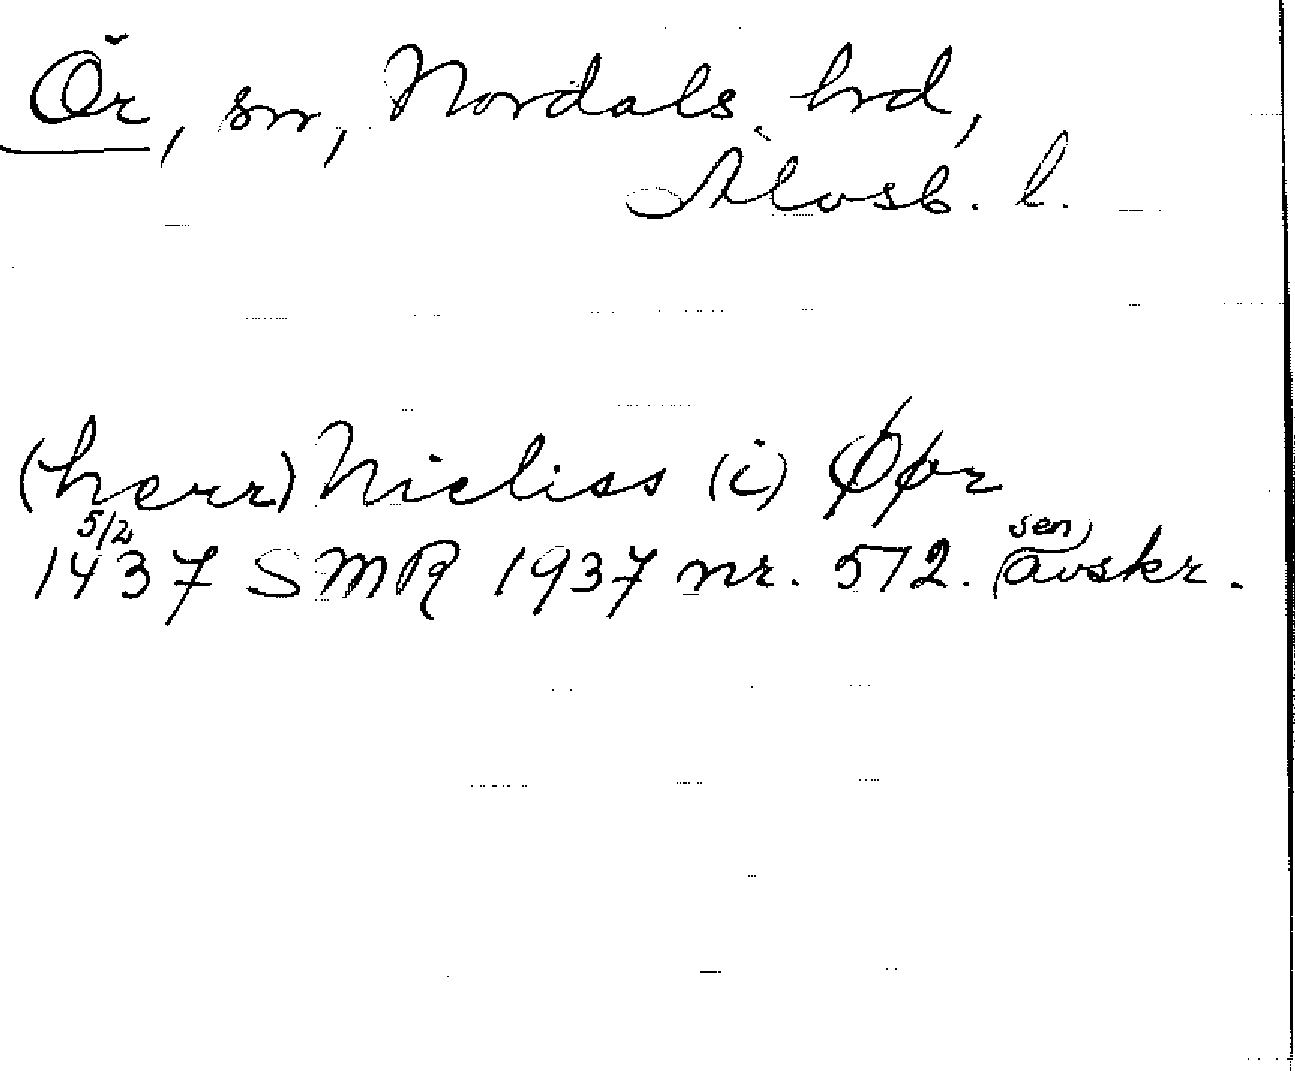 Ör, sn, Nordals hrd,
Älvsb. l.
(herr) Nicliss (i) Øør
5/2 1437 SMR 1937 nr. 572. (sen) avskr.